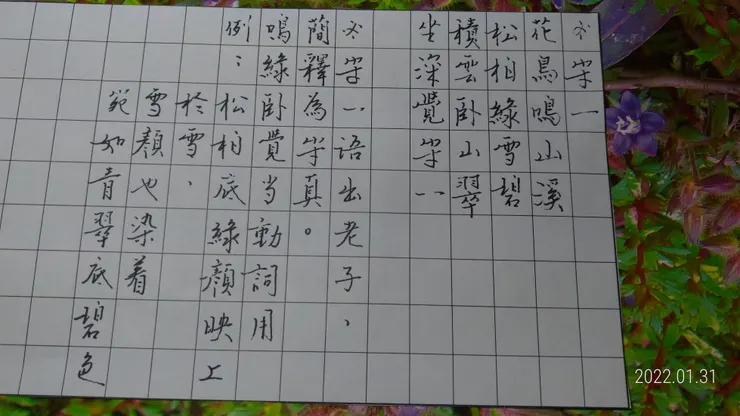 守一
花鳥鳴山溪
松柏綠雪碧
積雲卧山翠
坐深覺守一
守一語出老子,
簡釋為守真。
鳴綠卧覺当動詞用
例:松柏底綠顏映上
於雪、
雪顏也染着
宛如青翠底碧色
2022.01.31